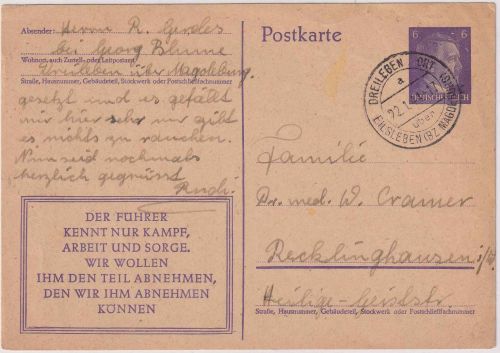 Absender: Herrn R. Gerdes
bei Georg Blume
Wohnort, auch Zustell- oder Leitpostamt
Dreileben über Magdeburg.
Straße, Hausnummer, Gebäudeteil, Stockwerk oder Postschließfachnummer
gesetzt und es gefällt
mir hier sehr nur gibt
es nichts zu rauchen.
Nun seid nochmals
herzlich gegrüsst
Rudi.
DER FÜHRER
KENNT NUR KAMPF,
ARBEIT UND SORGE.
WIR WOLLEN
IHM DEN TEIL ABNEHMEN,
DEN WIR IHM ABNEHMEN
KÖNNEN
Postkarte
6 6
DEUTSCHES REICH
DREILEBEN
a
22.1
über
EILSLEBEN (BZ MAGD
Familie
Dr. med. W. Cramer
Recklinghausen i/W
Heilige-Geiststr.
Straße, Hausnummer, Gebäudeteil, Stockwerk oder Postschließfachnummer